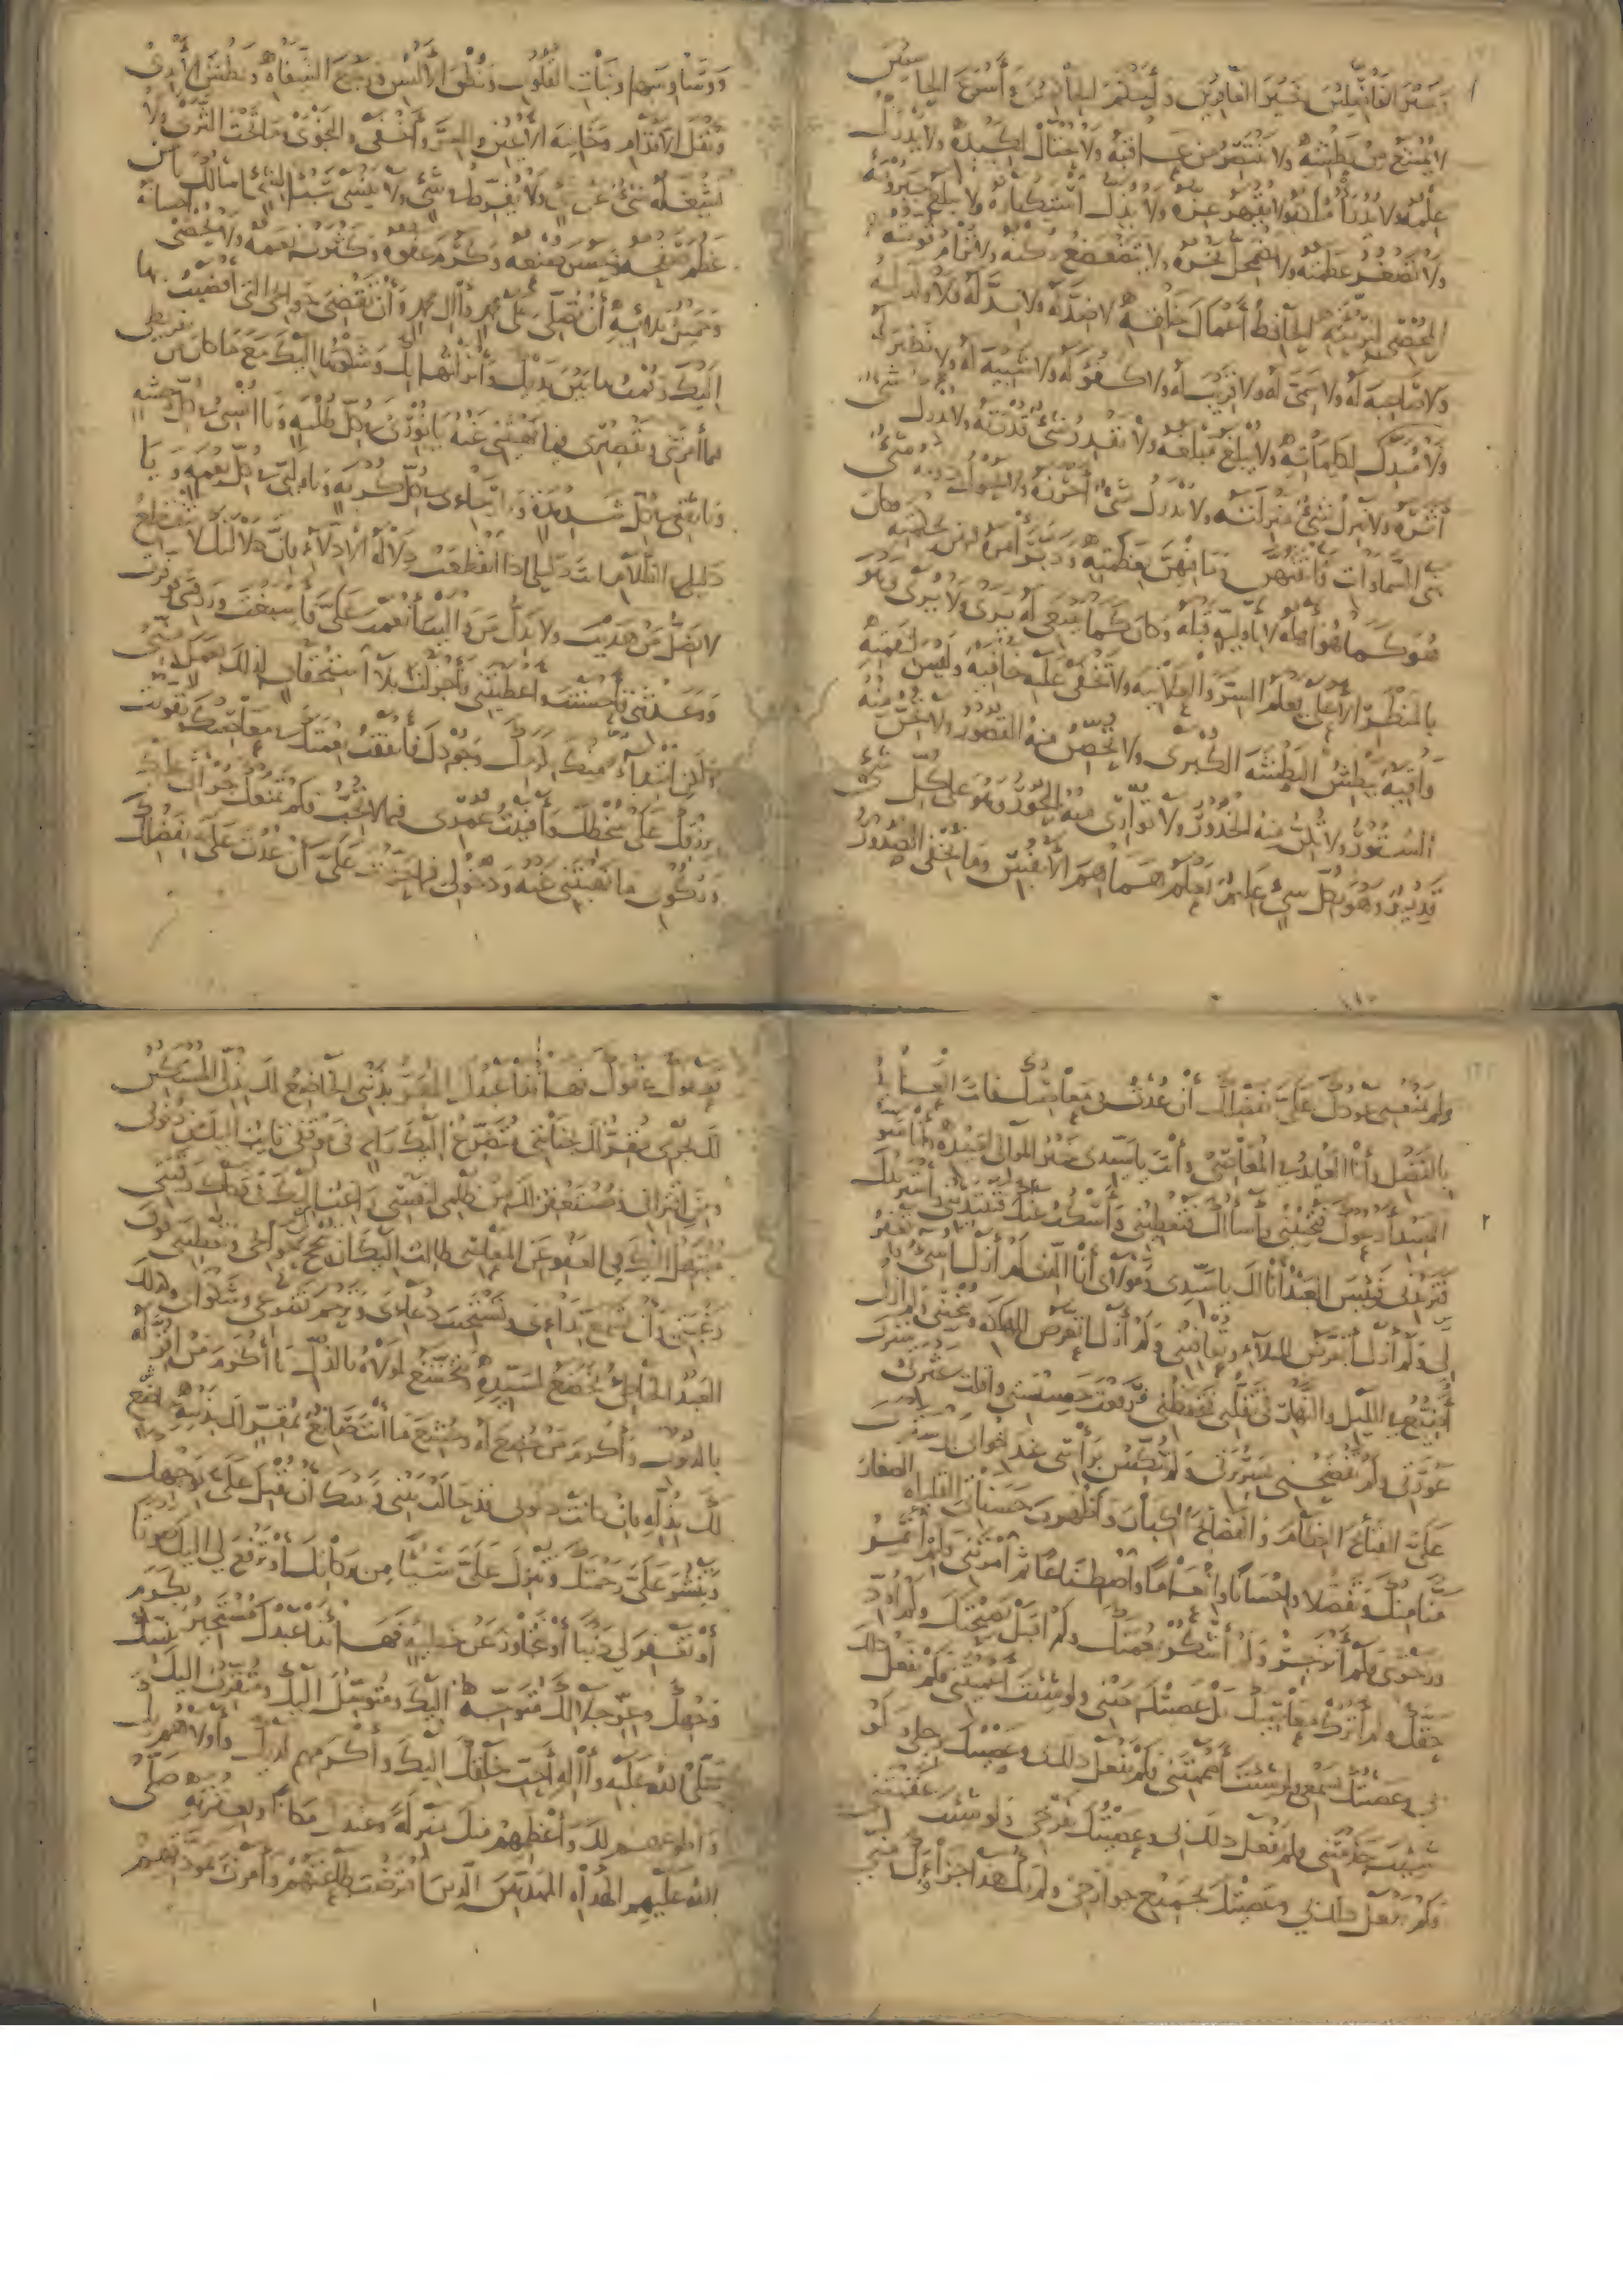 وخير الفاضلين وخير الغافرين وأحكم الحاكمين وأسرع الحاسبين
لا يمتنع من بطشه ولا ينتصر من عاقبه ولا يحتال لكيده ولا يدرك
علمه ولا يدرأ ملكه ولا يقهر عزه ولا يذل استكباره ولا يبلغ جبروته
ولا تصغر عظمته ولا يضمحل فخره ولا يتضعضع ركنه ولا ترام قوته
المحصي لبريته الحافظ أعمال خلقه لا ضد له ولا ند له ولا ولد له
ولا صاحبة له ولا سمي له ولا قريب له ولا كفو له ولا شبيه له ولا نظير له
ولا مبدل لكلماته ولا يبلغ مبلغه ولا يقدر شيء قدرته ولا يدرك شيء
أثره ولا ينزل شيء منزلته ولا يدرك شيء أحرزه ولا يحول دونه شيء
بنى السماوات فأتقنهن وما فيهن بعظمته ودبر أمره فيهن بحكمته وكان
هو كما هو أهله لا بأولية قبله وكان كما ينبغي له يرى ولا يرى وهو
بالمنظر الأعلى يعلم السر والعلانية ولا تخفى عليه خافية وليس لنقمته
واقية يبطش البطشة الكبرى ولا تحصن منه القصور ولا تجن منه
الستور ولا تكن منه الخدور ولا توارى منه البحور وهو على كل شيء
قدير وهو بكل شيء عليم يعلم هماهم الأنفس وما تخفي الصدور
ووساوسها ونيات القلوب ونطق الألسن ورجع الشفاه وبطش الأيدي
ونقل الأقدام وخائنة الأعين والسر وأخفى والنجوى وما تحت الثرى ولا
يشغله شيء عن شيء ولا يفرط في شيء ولا ينسى شيئا لشيء أسألك يا من
عظم صفحه وحسن صنعه وكرم عفوه وكثرت نعمه ولا يحصى إحسانه
وجميل بلائه أن تصلي على محمد وآل محمد وأن تقضي حوائجي التي أفضيت بها
إليك وقمت بها بين يديك وأنزلتها بك وشكوتها إليك مع ما كان من تفريطي
فيما أمرتني وتقصيري فيما نهيتني عنه يا نوري في كل ظلمة ويا أنسي في كل وحشة
ويا ثقتي في كل شديدة ويا رجائي في كل كربة ويا وليي في كل نعمة ويا
دليلي في الظلام أنت دليلي إذا انقطعت دلالة الأدلاء فإن دلالتك لا تنقطع
لا يضل من هديت ولا يذل من واليت أنعمت علي فأسبغت ورزقتني فوفرت
ووعدتني فأحسنت وأعطيتني فأجزلت بلا استحقاق لذلك بعمل مني
ولكن ابتداء منك لكرمك وجودك فأنفقت نعمتك في معاصيك وتقويت
برزقك على سخطك وأفنيت عمري فيما لا تحب فلم تمنعك جرأتي عليك
وركوبي ما نهيتني عنه ودخولي فيما حرمت علي أن عدت علي بفضلك
ولم يمنعني عودك علي بفضلك أن عدت في معاصيك فأنت العائد
بالفضل وأنا العائد في المعاصي وأنت يا سيدي خير الموالي لعبيده وأنا شر
العبيد أدعوك فتجيبني وأسألك فتعطيني وأسكت عنك فتبتدئني وأستزيدك
فتزيدني فبئس العبد أنا لك يا سيدي ومولاي أنا الذي لم أزل أسيء وتغفر
لي ولم أزل أتعرض للبلاء وتعافيني ولم أزل أتعرض للهلكة وتنجيني ولم أزل
أضيع في الليل والنهار في تقلبي فتحفظني فرفعت خسيستي وأقلت عثرتي وسترت
عورتي ولم تفضحني بسريرتي ولم تنكس برأسي عند إخواني بل سترت
علي القبائح العظام والفضائح الكبار وأظهرت حسناتي القليلة الصغار
منا منك وتفضلا وإحسانا وإنعاما واصطناعا ثم أمرتني فلم أئتمر
وزجرتني فلم أنزجر ولم أشكر نعمتك ولم أقبل نصيحتك ولم أؤد
حقك ولم أترك معاصيك بل عصيتك بعيني ولو شئت أعميتني فلم تفعل ذلك
بي وعصيتك بسمعي ولو شئت أصممتني فلم تفعل ذلك بي وعصيتك برجلي ولو
شئت جذمتني فلم تفعل ذلك بي وعصيتك بفرجي ولو شئت عقمتني
ولم تفعل ذلك بي وعصيتك بجميع جوارحي ولم يك هذا جزاؤك مني
فعفوك عفوك فها أنا ذا عبدك المقر بذنبي الخاضع لك بذلي المستكين
لك بجرمي مقر لك بجنايتي متضرع إليك راج لك في موقفي تائب إليك من ذنوبي
ومن اقترافي ومستغفر لك من ظلمي لنفسي راغب إليك في فكاك رقبتي
مبتهل إليك في العفو عن المعاصي طالب إليك أن تنجح لي حوائجي وتعطيني فوق
رغبتي وأن تسمع ندائي وتستجيب دعائي وترحم تضرعي وشكواي وكذلك
العبد الخاطئ يخضع لسيده ويخشع لمولاه بالذل يا أكرم من أقر له
بالذنوب وأكرم من خضع له وخشع ما أنت صانع بمقر لك بذنبه خاضع
لك بذله فإن كانت ذنوبي قد حالت بيني وبينك أن تقبل علي بوجهك
وتنشر علي رحمتك وتنزل علي شيئا من بركاتك أو ترفع لي إليك صوتا
أو تغفر لي ذنبا أو تتجاوز عن خطيئة فها أنا ذا عبدك مستجير بكرم
وجهك وعز جلالك متوجه إليك ومتوسل إليك ومتقرب إليك بنبيك
صلى الله عليه وآله أحب خلقك إليك وأكرمهم لديك وأولاهم بك
وأطوعهم لك وأعظمهم منك منزلة وعندك مكانا وبعترته صلى
الله عليهم الهداة المهديين الذين افترضت طاعتهم وأمرت بمودتهم